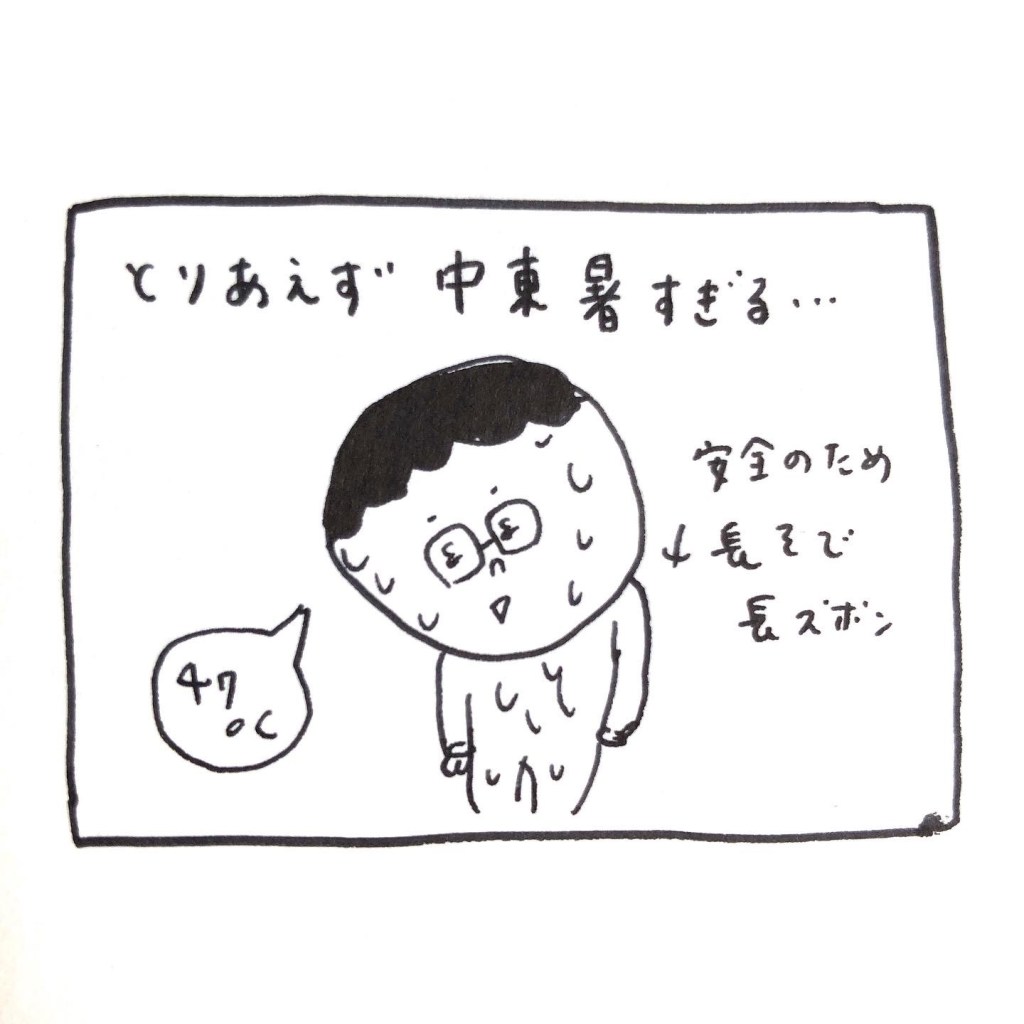 とりあえず 中東暑すぎる...
安全のため
長そで
長ズボン
47
℃